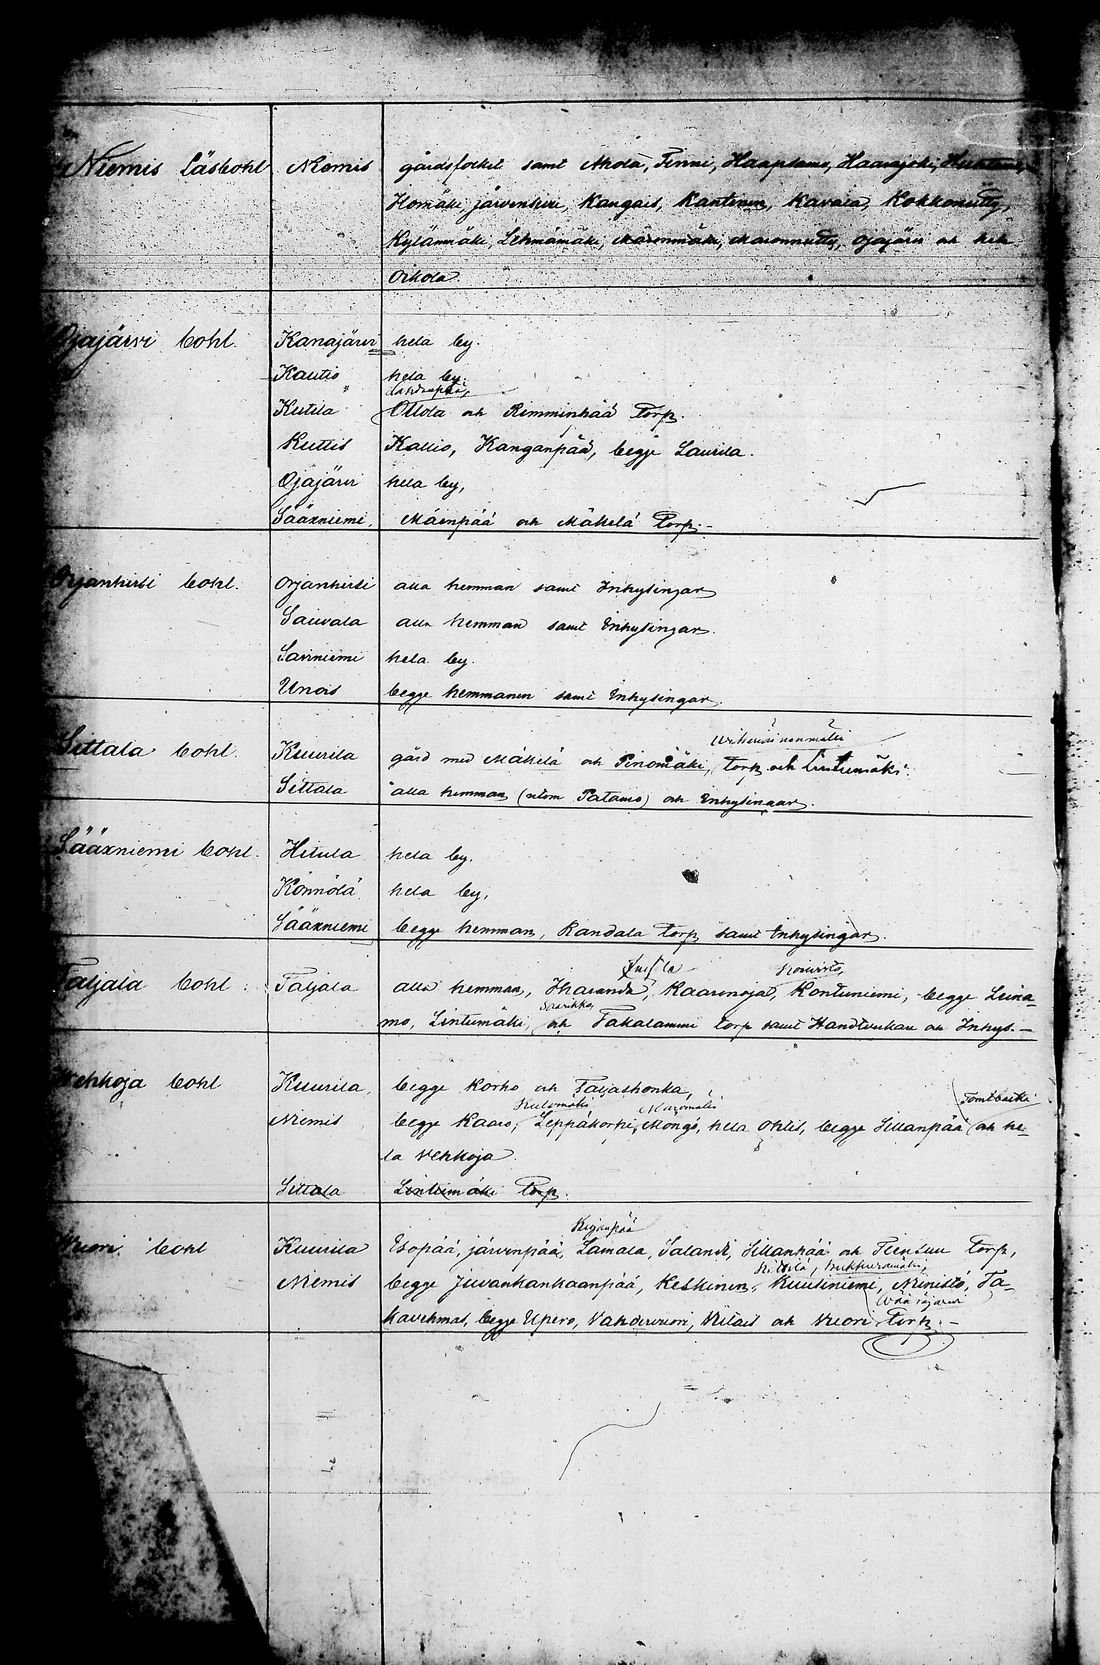 Niemis Läsbohl Niemis gårdsfolket samt Ahola, Finni, Haapsamo, Haarajoki,
Komäki järvenhivi, Kangais, Kantinen, Kavala, Kokkomütty,
Kylänmäki, Lehmämäki, Ojajärvi och hela
Orhola.
Ojajärvi bohl. Kanajärvi hela by.
Kautio hela by.
Kutila Ollola och Rimminpää Torp.
Kuttis Kallio, Kanganpää, begge Laurila.
Ojajärvi hela by,
Sääxniemi, Mäenpää och Mäkelä Torp.-
Orjanhirsi bohl. Orjanhirsi alla hemman samt Inhysingar
Sauvala alla hemman samt Inhysingar.
Saviniemi hela by.
Unois begge hemmanen samt Inhysingar.
Wiherväisenmäki
Sittala bohl. Kuurila gård med Mäkelä och Pinomäki, torp och Lintumäki.
Sittala alla hemman (utom Patamo) och Inhysingar.
Sääxniemi bohl. Hitula hela by.
Könnölä hela by,
Sääxniemi begge hemman, Randala torp samt Inhysingar.
Koivisto,
Taljala bohl. Taljala alla hemman, Kaarinoja, Kontuniemi, begge Leina-
Saarikko,
mo, Lintumäki, och Takalammi torp samt Handtverkare och Inhys.-
Vehkoja bohl Kuurila, begge Korho och Taljashonka,
Kulomäki Tomtbacka
Niemis begge Kaaro, Leppäkorpi, Mongo, hela Ohlis, begge Sillanpää och he-
la Vehkoja.
Sittala Lintumäki Torp.
Kujanpää
Vuori bohl Kuurila Isopää, järvenpää, Lamala, Salandi, Sillanpää och Tiensuu torp,
Niemis begge Juvankankaanpää, Keskinen, Kuusiniemi, Niinistö, Ta-
Wääräjärvi
kavehmas, begge Upero, Vahdervuori, Vitais och Vuori Torp.-